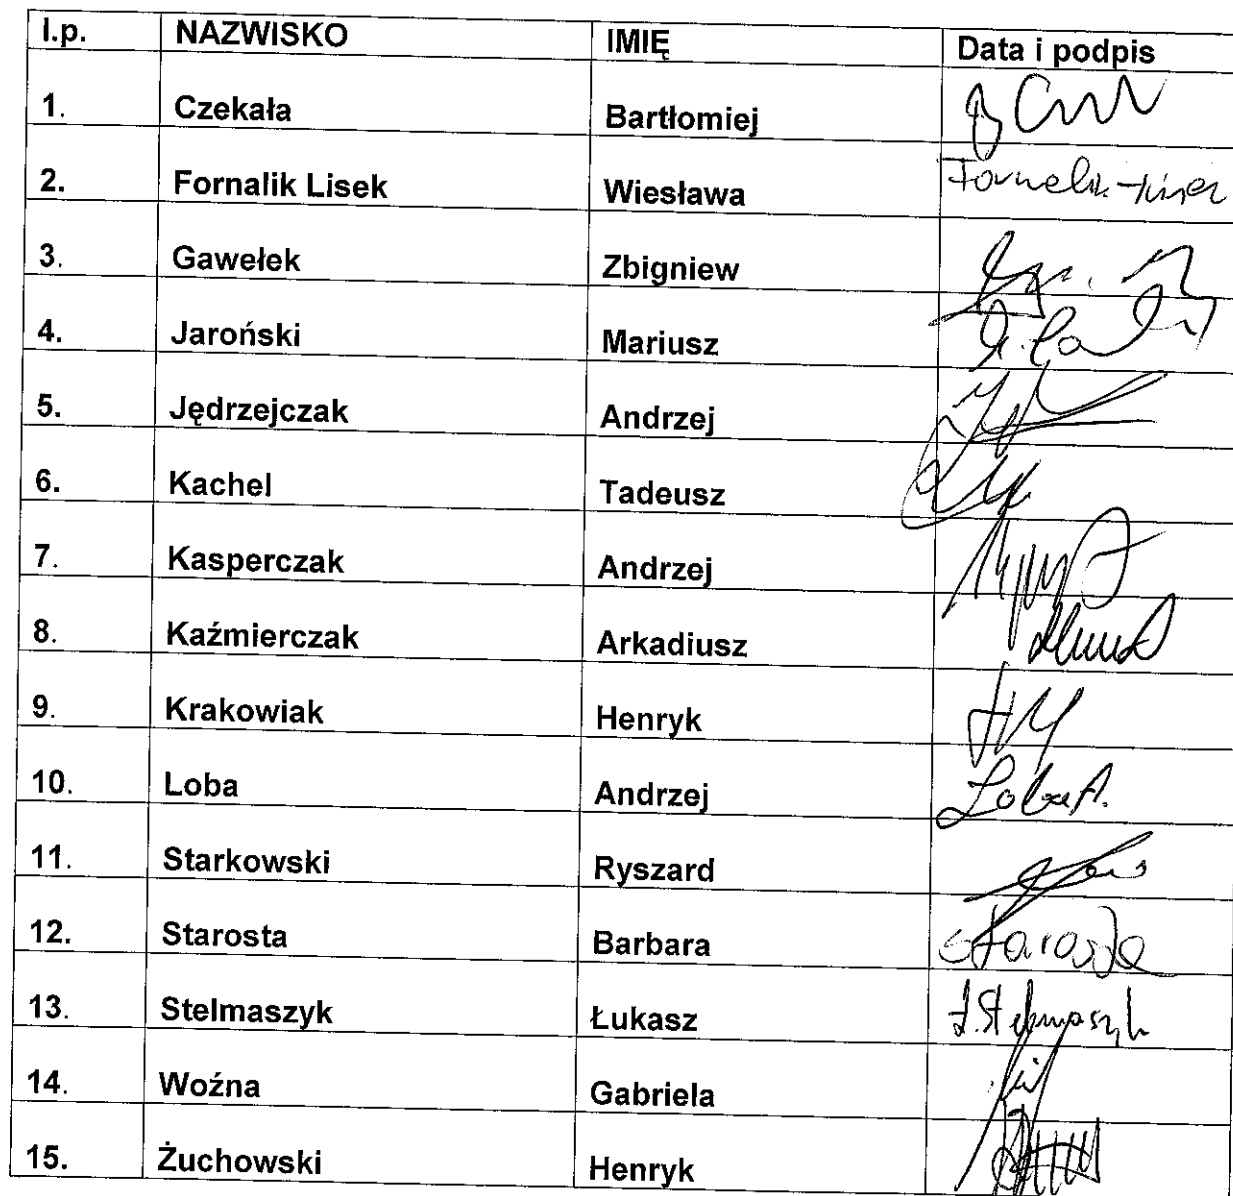 l.p. NAZWISKO IMIĘ Data i podpis
1. Czekała Bartłomiej
2. Fornalik Lisek Wiesława Fornalik-Lisek
3. Gawełek Zbigniew
4. Jaroński Mariusz
5. Jędrzejczak Andrzej
6. Kachel Tadeusz
7. Kasperczak Andrzej
8. Kaźmierczak Arkadiusz
9. Krakowiak Henryk
10. Loba Andrzej Loba A.
11. Starkowski Ryszard
12. Starosta Barbara Starosta
13. Stelmaszyk Łukasz Ł.Stelmaszyk
14. Woźna Gabriela
15. Żuchowski Henryk